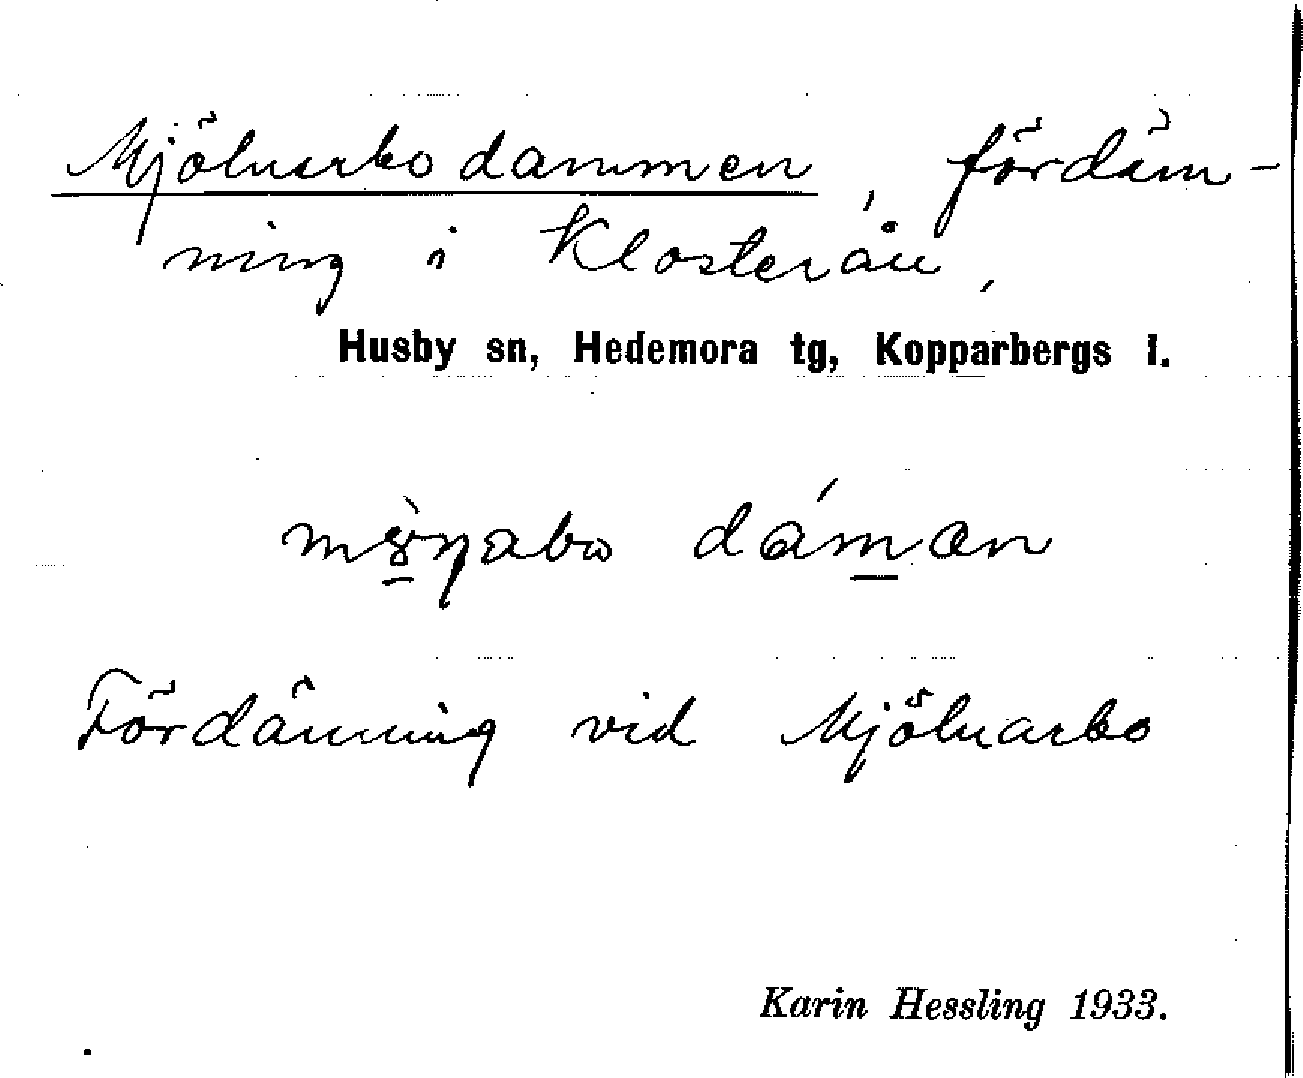 Mjölnarbodammen, fördäm-
ning i Klosterån,
Husby sn, Hedemora tg, Kopparbergs l.
daman
Fördämning vid Mjölnarbo
Karin Hessling 1933.